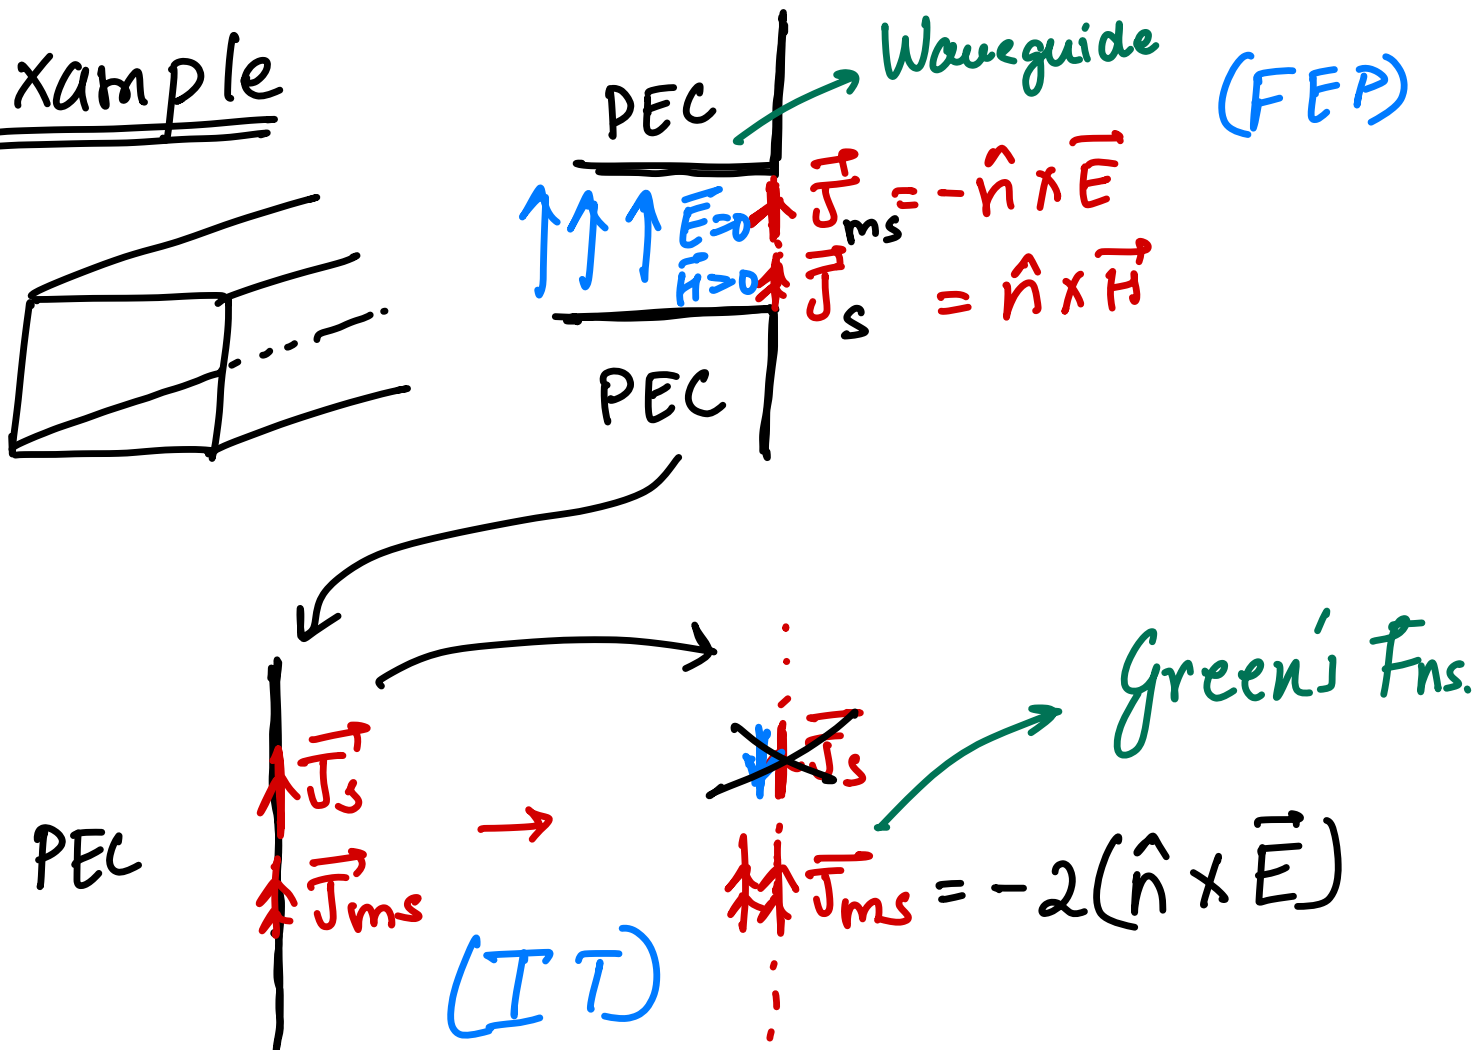 xample
PEC
Waveguide
(FEP)
E⃗=0
H⃗=0
J⃗ms = -n̂ × E⃗
J⃗s = n̂ × H⃗
PEC
PEC
J⃗s
J⃗ms
(IT)
J⃗s
J⃗ms = -2(n̂ × E⃗)
Green's Fns.